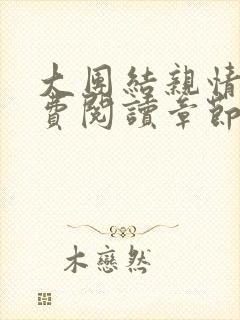 大團結親情
費閱讀章節
木戀然